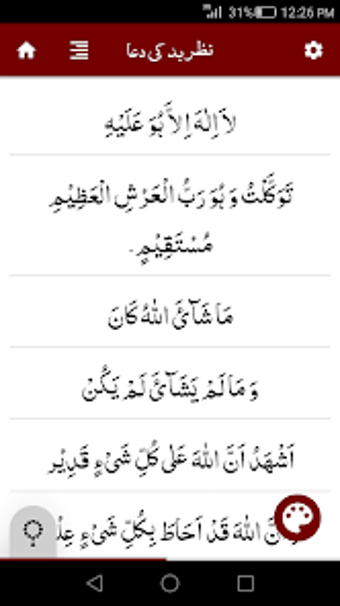 31% 12:26 PM
نظر بد کی دعا
لَا اِلٰهَ اِلاَّ ہُوَ عَلَیْهِ
تَوَکَّلْتُ وَ ہُوَ رَبُّ الْعَرْشِ الْعَظِیْمِ
مُسْتَقِیْمٍ۔
مَا شَآئَ اللّٰهُ کَانَ
وَ مَا لَمْ یَشَآئَ لَمْ یَکُنْ
اَشْهَدُ اَنَّ اللّٰهَ عَلٰی کُلِّ شَیْءٍ قَدِیْر
اللّٰهَ قَدْ اَحَاطَ بِکُلِّ شَیْءٍ